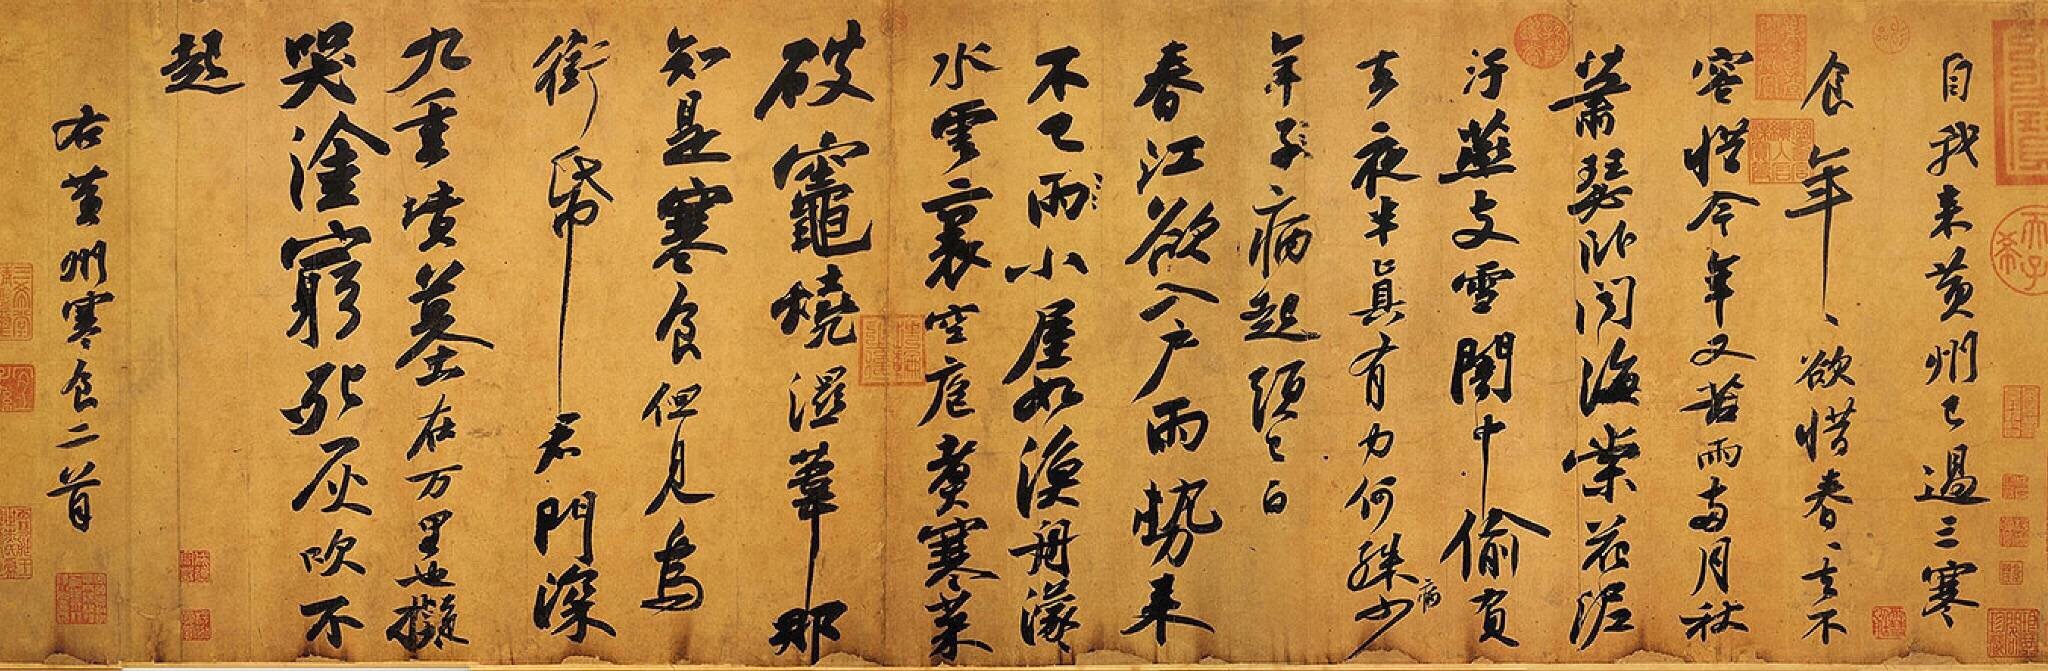 自我来黄州已過三寒
食年、欲惜春、去不
容惜今年又苦雨兩月秋
蕭瑟卧聞海棠花泥
汙燕支雪闇中偷負
去夜半真有力何殊病少
年子病起須已白
春江欲入戶雨勢来
不已雨小屋如漁舟濛
水雲裏空庖煮寒菜
破竈燒濕葦那
知是寒食但見烏
銜帋君門深
九重墳墓在万里也擬
哭塗窮死灰吹不
起
右黄州寒食二首